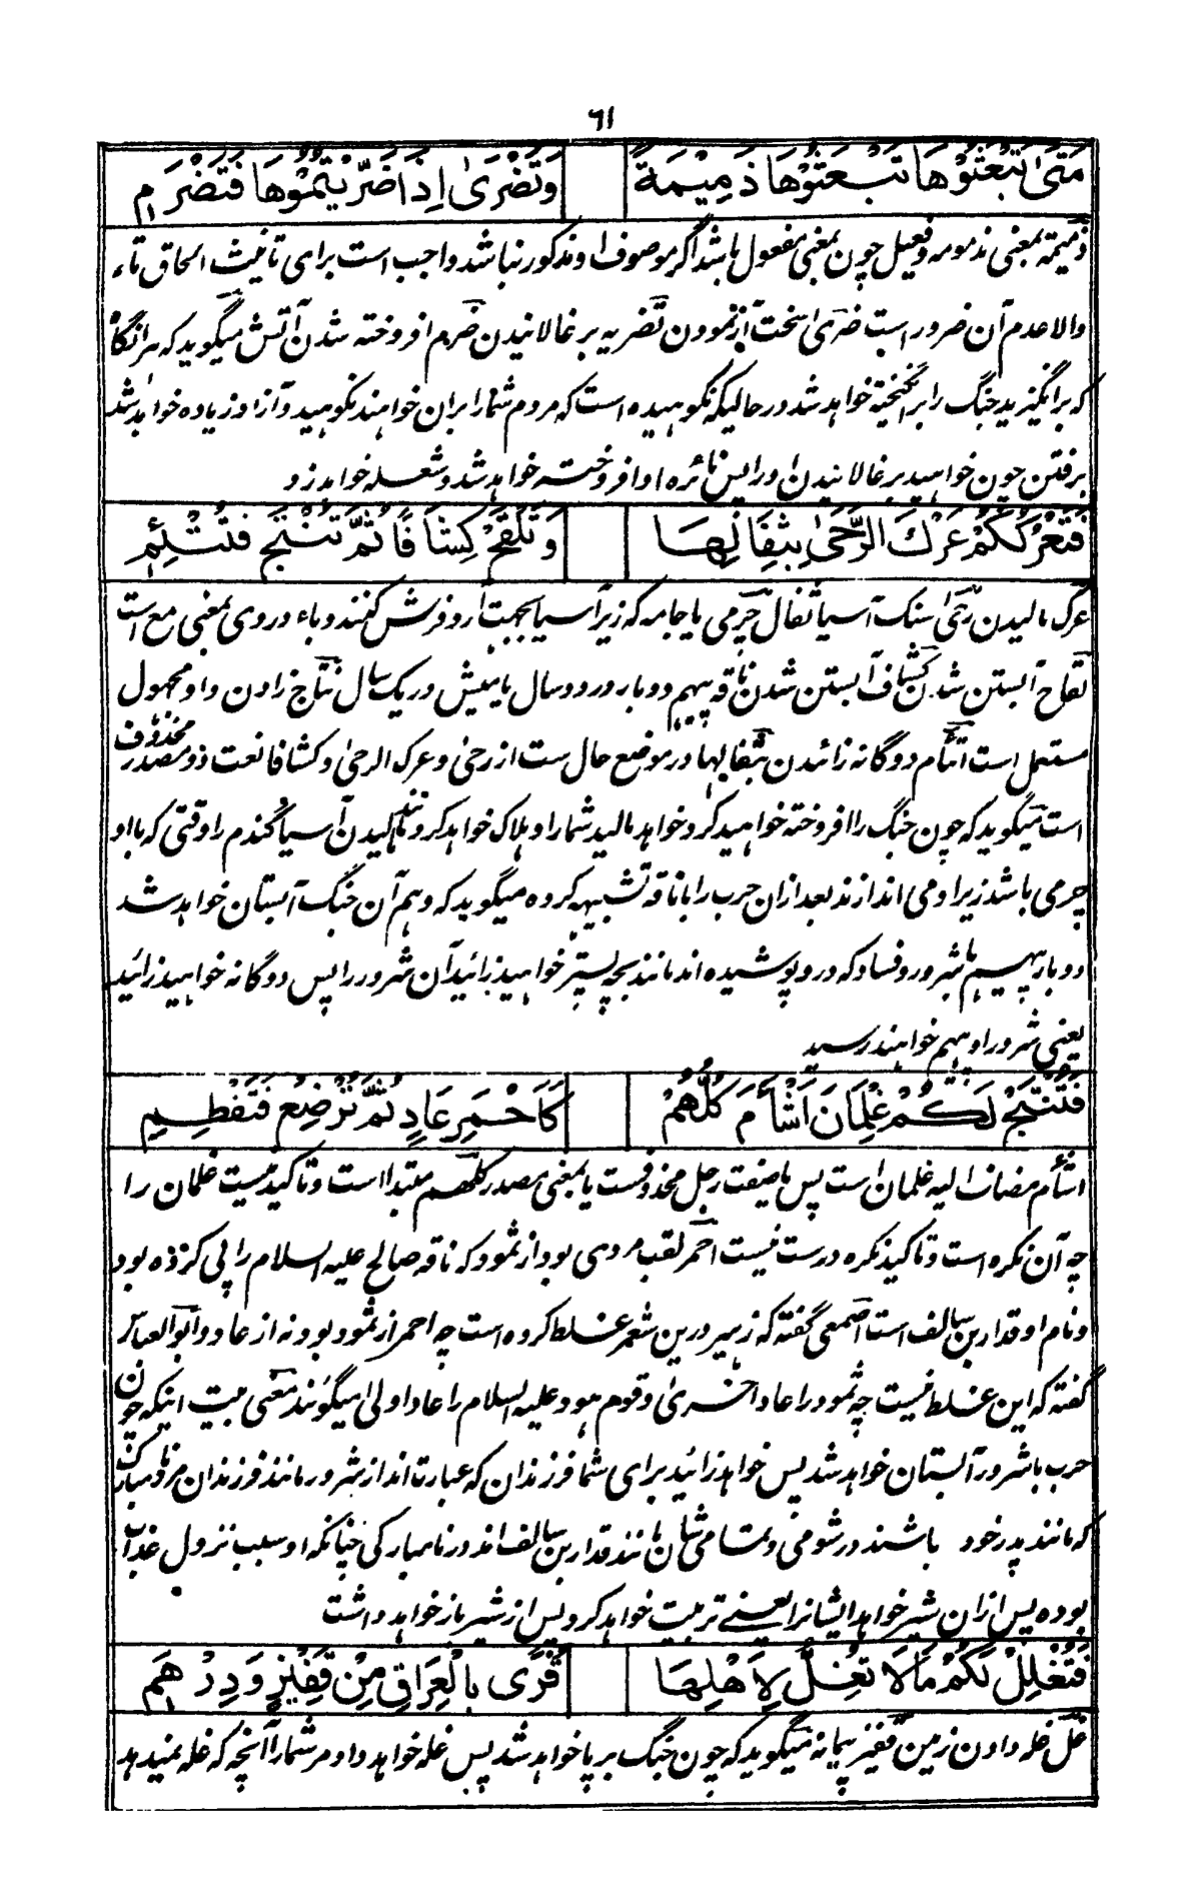 ٦١
مَتىٰ تَبْعَثُوْهَا تَبْعَثُوْهَا ذَمِيْمَةً وَتَضْرَىٰ اِذَا ضَرَّيْتُمُوْهَا فَتَضْرَمِ
ذمیمة بمعنی مذمومه و فعیل چون بمعنی مفعول باشد اگر موصوف او مذکور نباشد واجب است برای تانیث الحاق تاء
والا عدم آن ضرور است ضرَی سخت آز نمودن تضریه برغالانیدن ضرم افروخته شدن آتش میگوید که هرانگاه
که برانگیزید جنگ را برانگیخته خواهد شد در حالیکه نکوهیده است که مردم شما را بران خواهند نکوهید و آز او زیاده خواهد شد
برفتن چون خواهید برغالانیدن او را پس نائره او افروخته خواهد شد و شعله خواهد زد
فَتَعْرُكُكُمْ عَرْكَ الرَّحَىٰ بِثِفَالِهَا وَتَلْقَحْ كِشَافًا ثُمَّ تُنْتَجْ فَتُتْئِمِ
عرک مالیدن رحیٰ سنک آسیا ثفال چرمی یا جامه که زیر آسیا بجهت آرد فرش کنند و باء در وی بمعنی مع است
لقاح آبستن شدن کشاف آبستن شدن ناقه پیهم دو بار در دو سال یا بیش در یک سال نتاج زادن و او مجهول
مستعمل است اتئام دوگانه زائیدن بثفالها در موضع حال ست از رحیٰ و عرک الرحیٰ و کشافا نعت ذو مصدر محذوف
است میگوید که چون جنگ را افروخته خواهید کرد خواهد مالید شما را و هلاک خواهد کرد مانند مالیدن آسیا گندم را وقتی که با او
چرمی باشد زیر او می اندازند بعد ازان حرب را با ناقه تشبیه کرده میگوید که وهم آن جنگ آبستان خواهد شد
دوبار پیهم بشرور و فساد که درو پوشیده اند مانند بچه پستر خواهید زائید آن شرور را پس دوگانه خواهید زائید
یعنی شرور او پیهم خواهند رسید
فَتُنْتَجْ لَكُمْ غِلْمَانَ اَشْأَمَ كُلُّهُمْ كَاَحْمَرِ عَادٍ ثُمَّ تُرْضِعْ فَتَفْطِمِ
اشأم مضاف الیه غلمان است پس یا صفت رجل محذوفست یا بمعنی مصدر کلهم مبتدا است و تاکید نیست غلمان را
چه آن نکره است و تاکید نکره درست نیست احمر لقب مردی بود از ثمود که ناقه صالح علیه السلام را پی کرده بود
و نام او قدار بن سالف است اصمعی گفته که زهیر درین شعر غلط کرده است چه احمر از ثمود بود نه از عاد و ابو العباس
گفته که این غلط نیست چه ثمود را عاد اخریٰ و قوم هود علیه السلام را عاد اولیٰ میگویند معنی بیت اینکه چون آن
حرب بشرور آبستان خواهد شد پس خواهد زائید برای شما فرزندان که عبارت اند از شرور مانند فرزندان مرد نامبارک
که مانند پدر خود باشند در شومی و تمامی شان مانند قدار بن سالف اند در نامبارکی چنانکه او سبب نزول عذاب
بوده پس ازان شیر خواهد ایشانرا یعنی تربیت خواهد کرد پس از شیر باز خواهد داشت
فَتُغْلِلْ لَكُمْ مَالَا تُغِلُّ لِاَهْلِهَا قُرًى بِالْعِرَاقِ مِنْ قَفِيْزٍ وَدِرْهَمِ
غلّ غله دادن زمین قفیز پیمانه میگوید که چون جنگ برپا خواهد شد پس غله خواهد داد مر شما را آنچه که غله نمیدهد